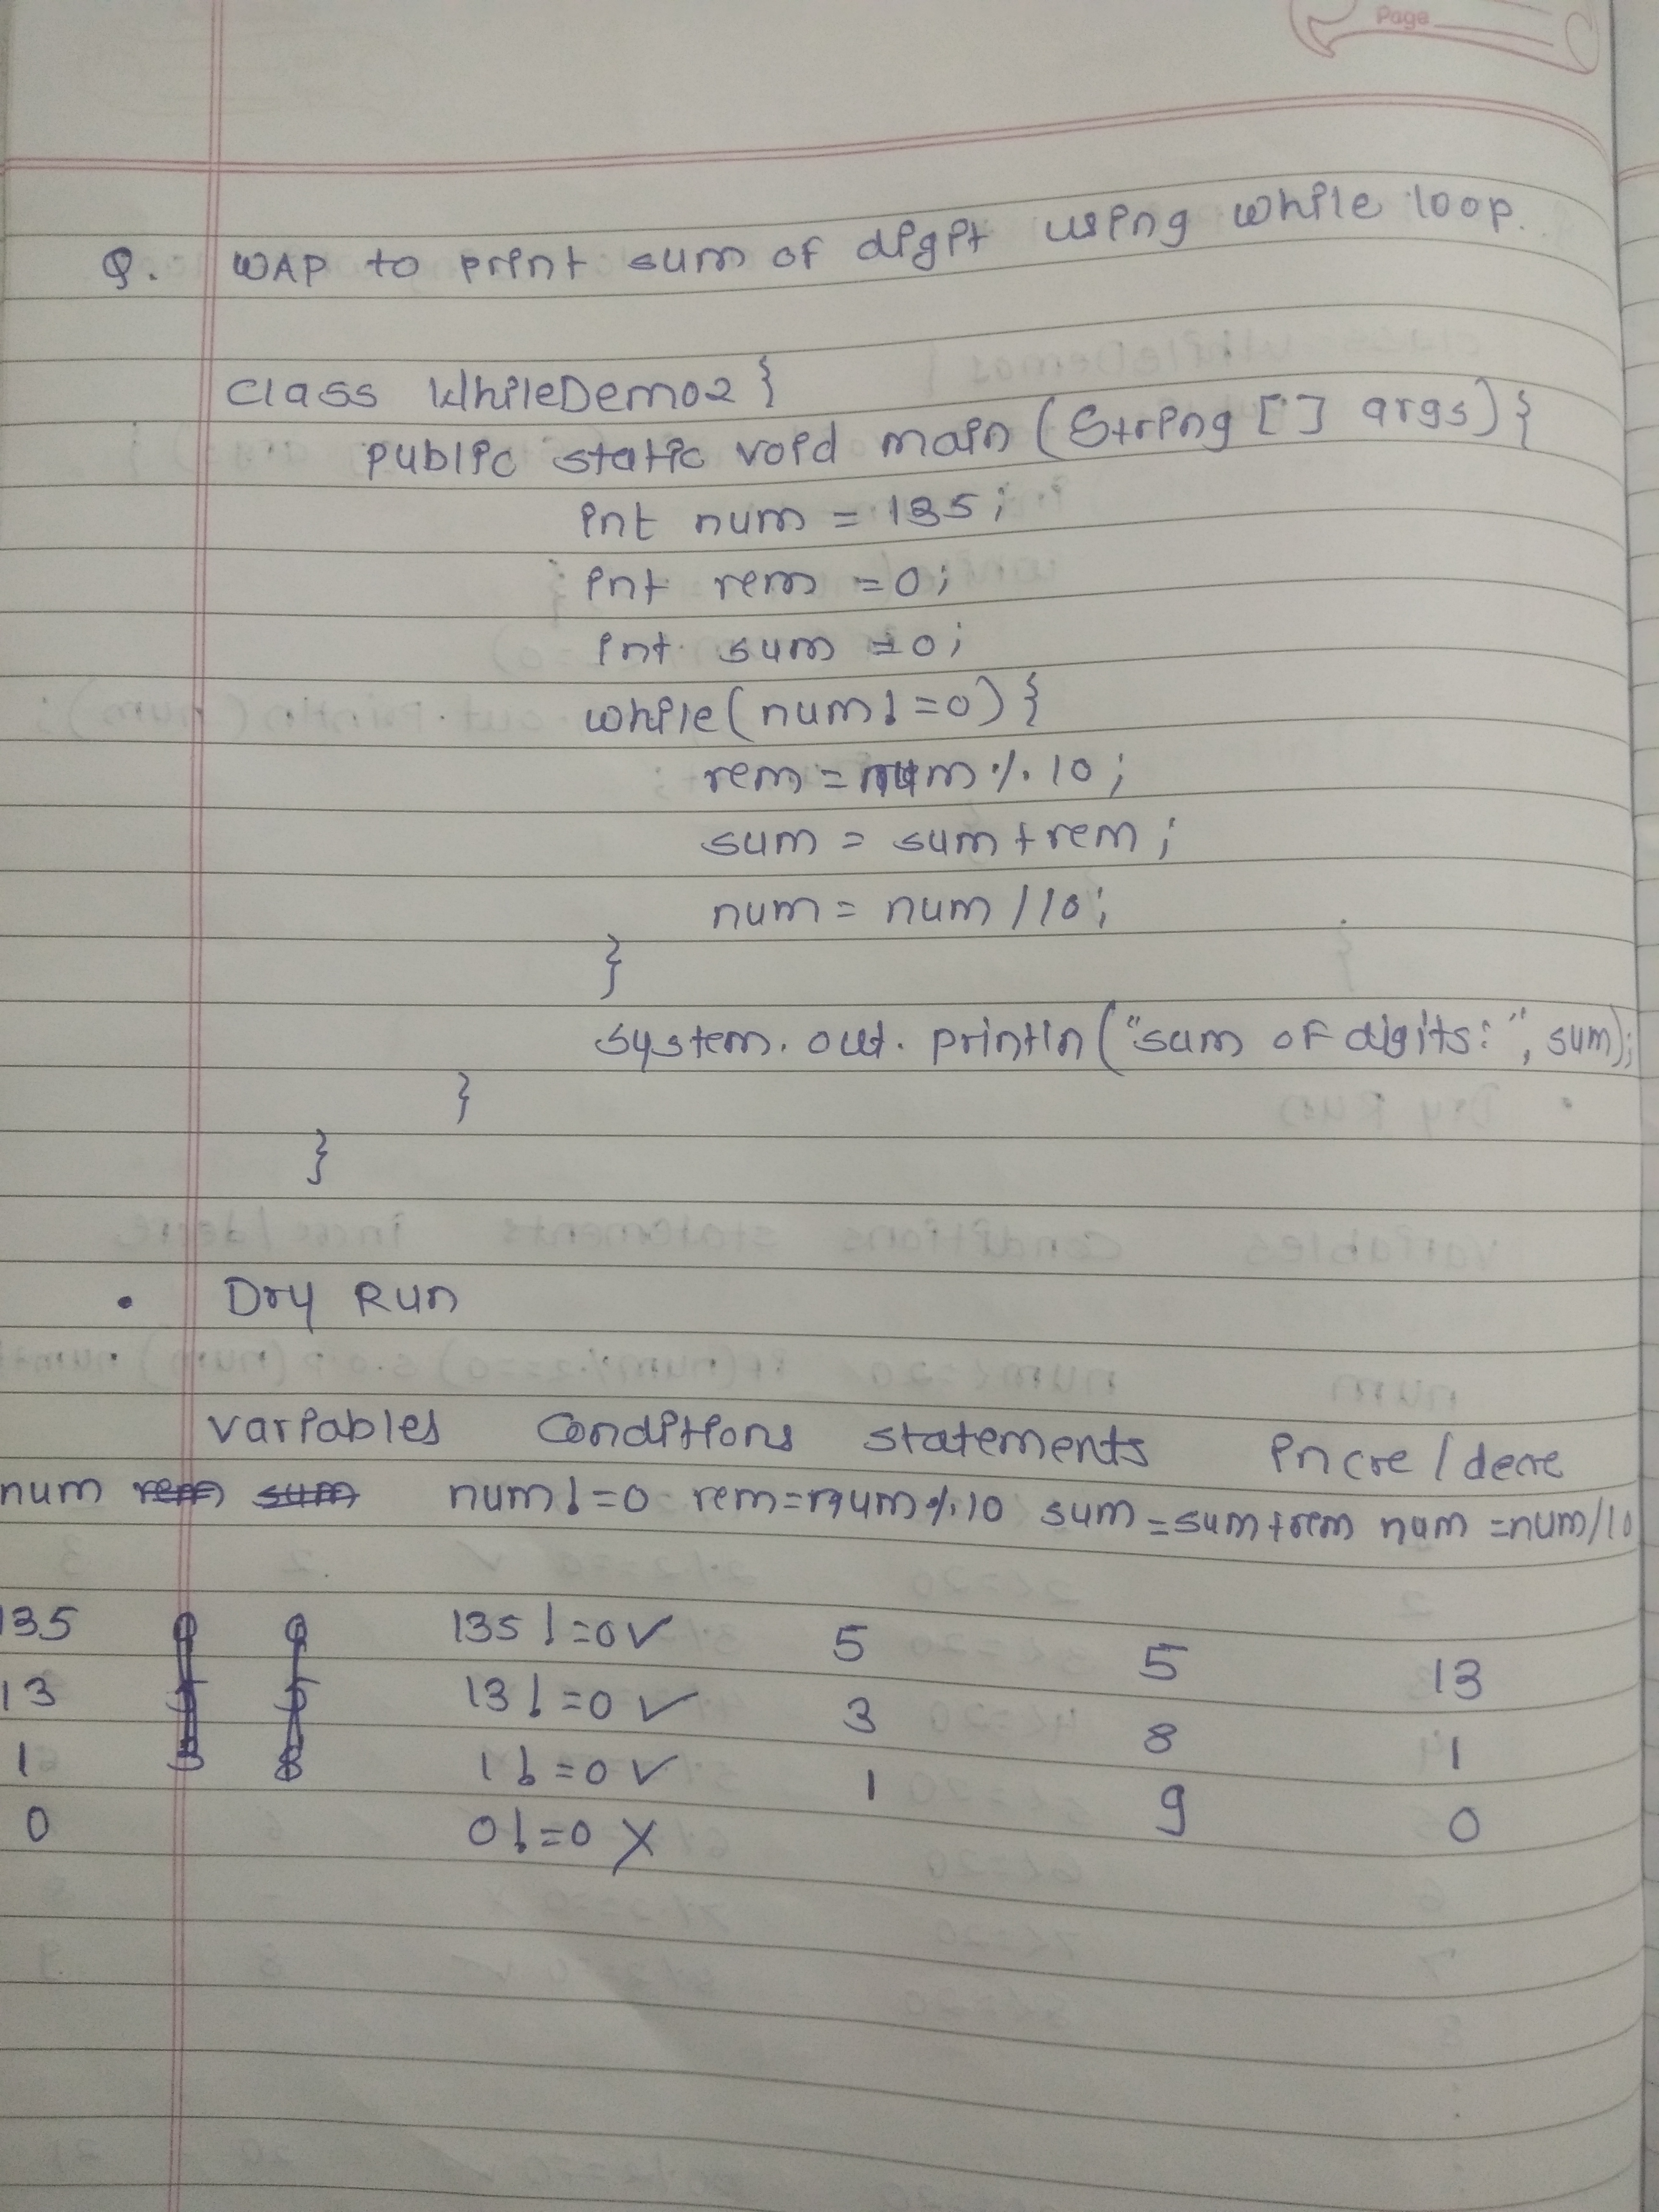 Page
Q. WAP to print sum of digit using while loop.
class WhileDemo2 {
public static void main (String [] args) {
int num = 135;
int rem = 0;
int sum = 0;
while (num != 0) {
rem = num % 10;
sum = sum + rem;
num = num / 10;
}
system.out.println("sum of digits:", sum);
}
}
• Dry Run
variables conditions statements incre/decre
num rem sum num != 0 rem = num % 10 sum = sum + rem num = num/10
135 0 0 135 != 0 ✓ 5 5 13
13 5 5 13 != 0 ✓ 3 8 1
1 3 8 1 != 0 ✓ 1 9 0
0 0 != 0 X